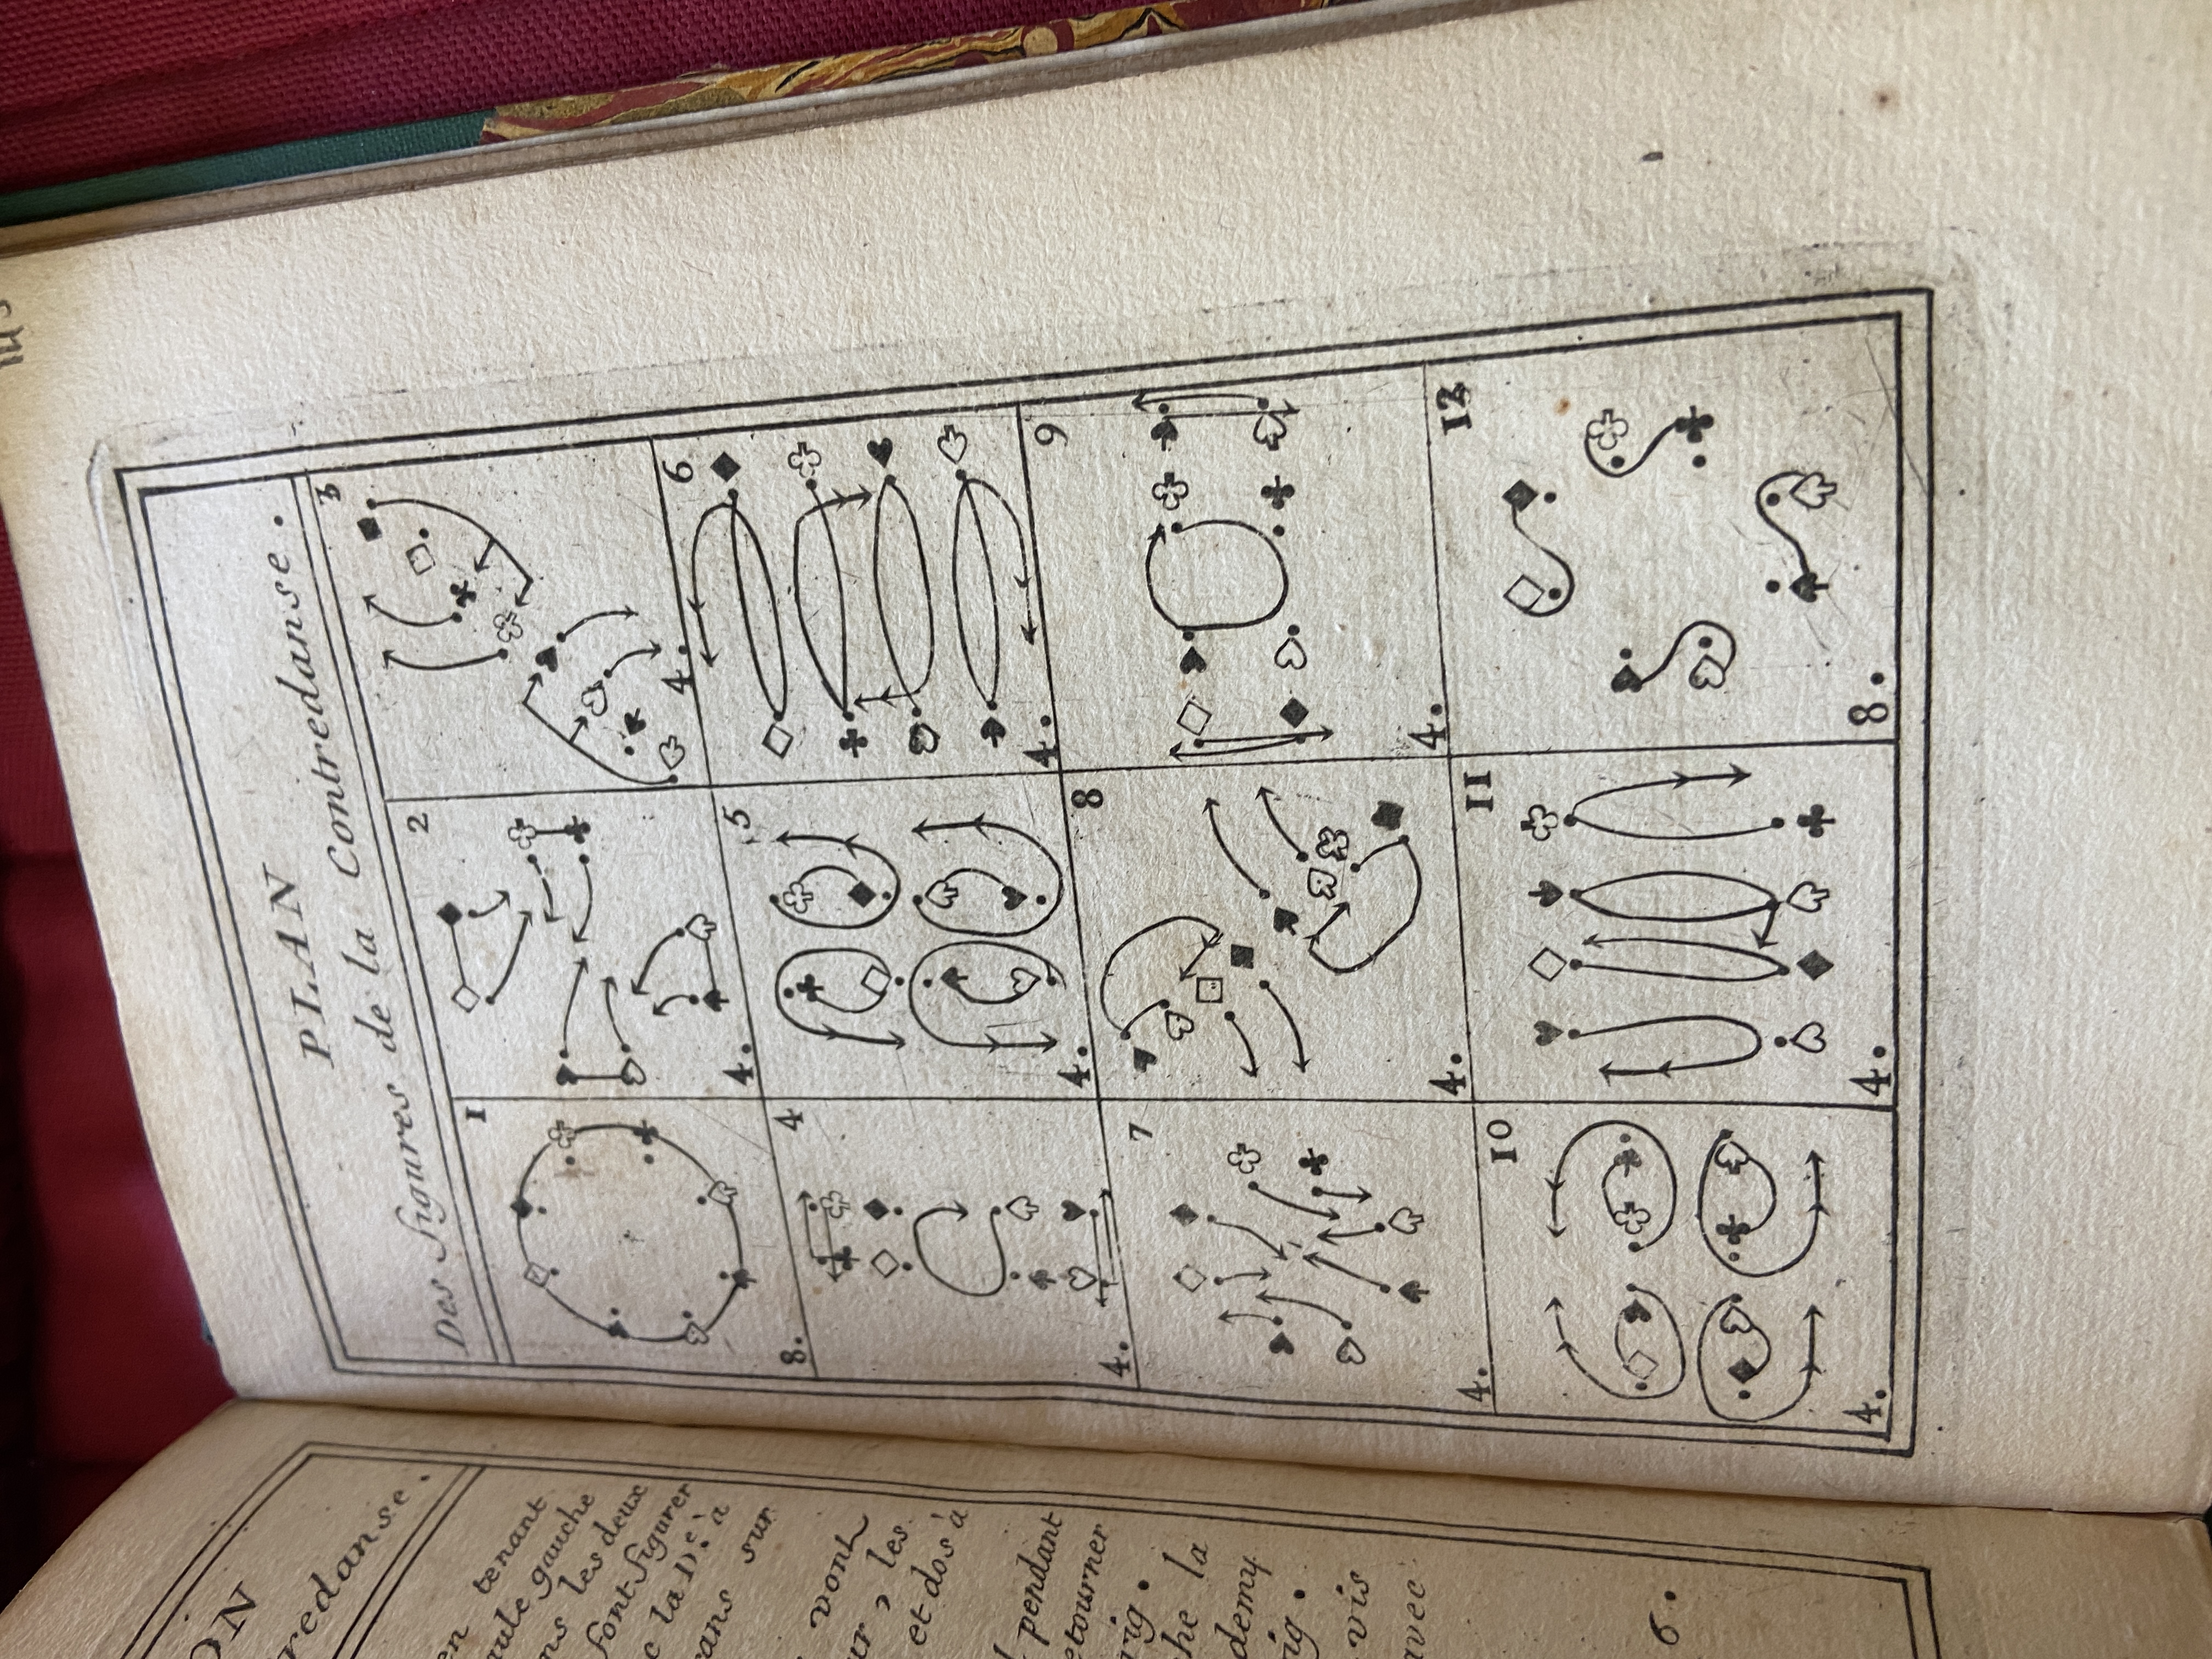 PLAN
Des figures de la Contredanse.
1
8.
2
4.
3
4.
4
4.
5
4.
6
4.
7
4.
8
4.
9
4.
10
4.
11
4.
12
8.
ON
redanse.
en tenant
aule gauche
ns les deux
font figurer
c la D.e à
rans sur
vont
ur, les
et dos à
pendant
etourner
rig.
he la
demy
ig.
vis
avec
6.